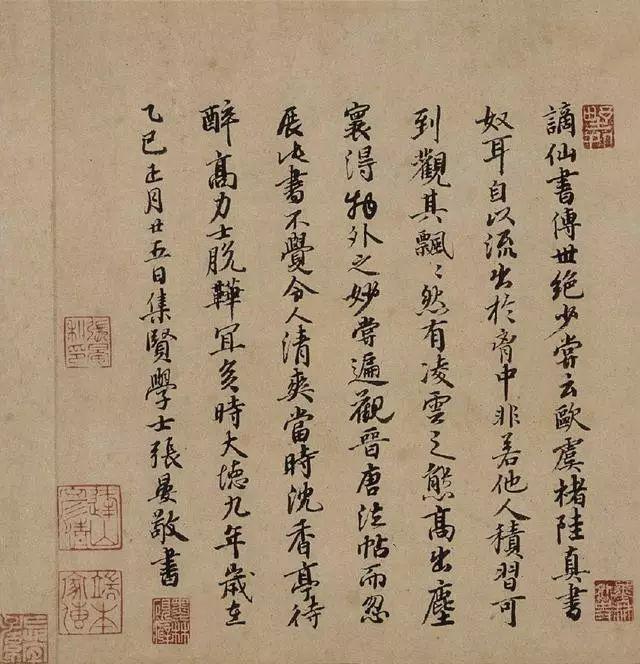 謫仙書傳世絶少嘗云歐虞褚陸真書
奴耳自以流出於胷中非若他人積習可
到觀其飄〻然有凌雲之態高出塵
寰得物外之妙嘗遍觀晉唐法帖而忽
展此書不覺令人清爽當時沈香亭待
醉高力士脱鞾宜矣時大德九年歲在
乙巳正月廿五日集賢學士張晏敬書
張晏私印
端本家傳